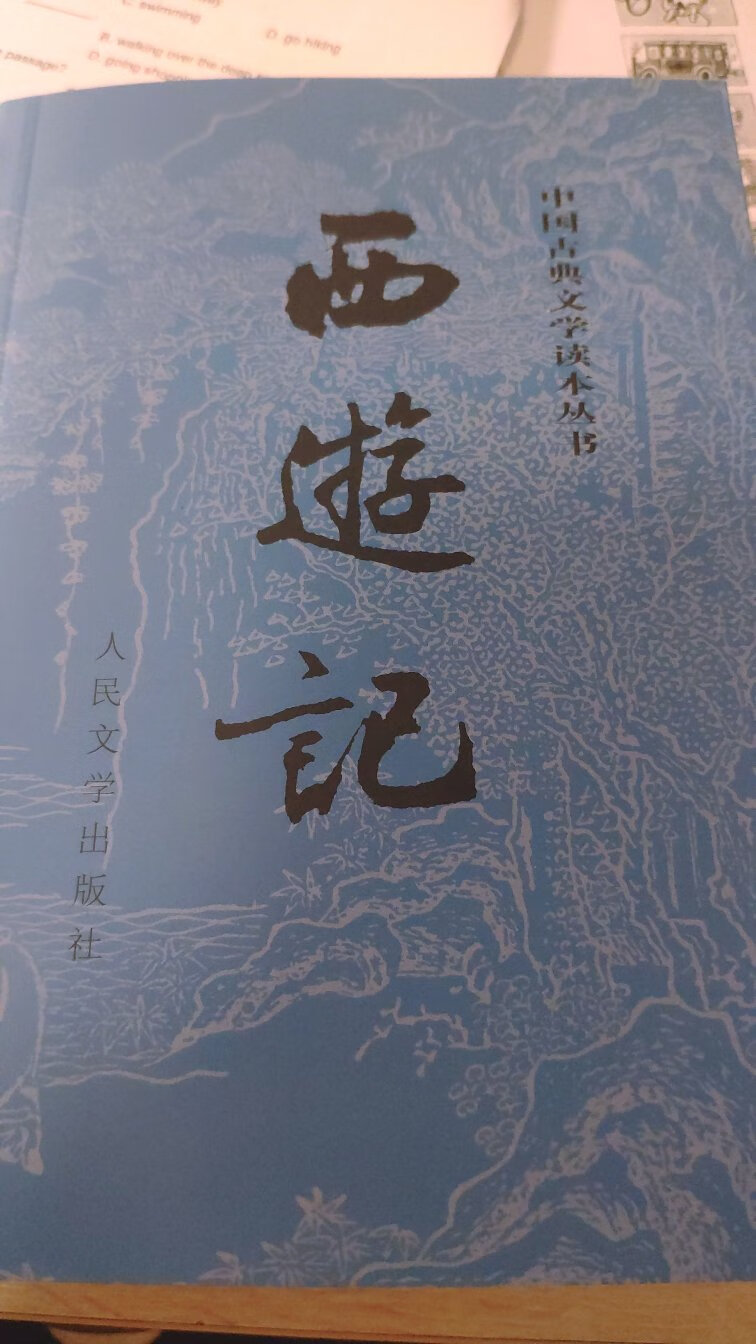 C. swimming
D. go hiking
B. walking over the deep
passage?
D. going shopping
中国古典文学读本丛书
西遊記
人民文学出版社